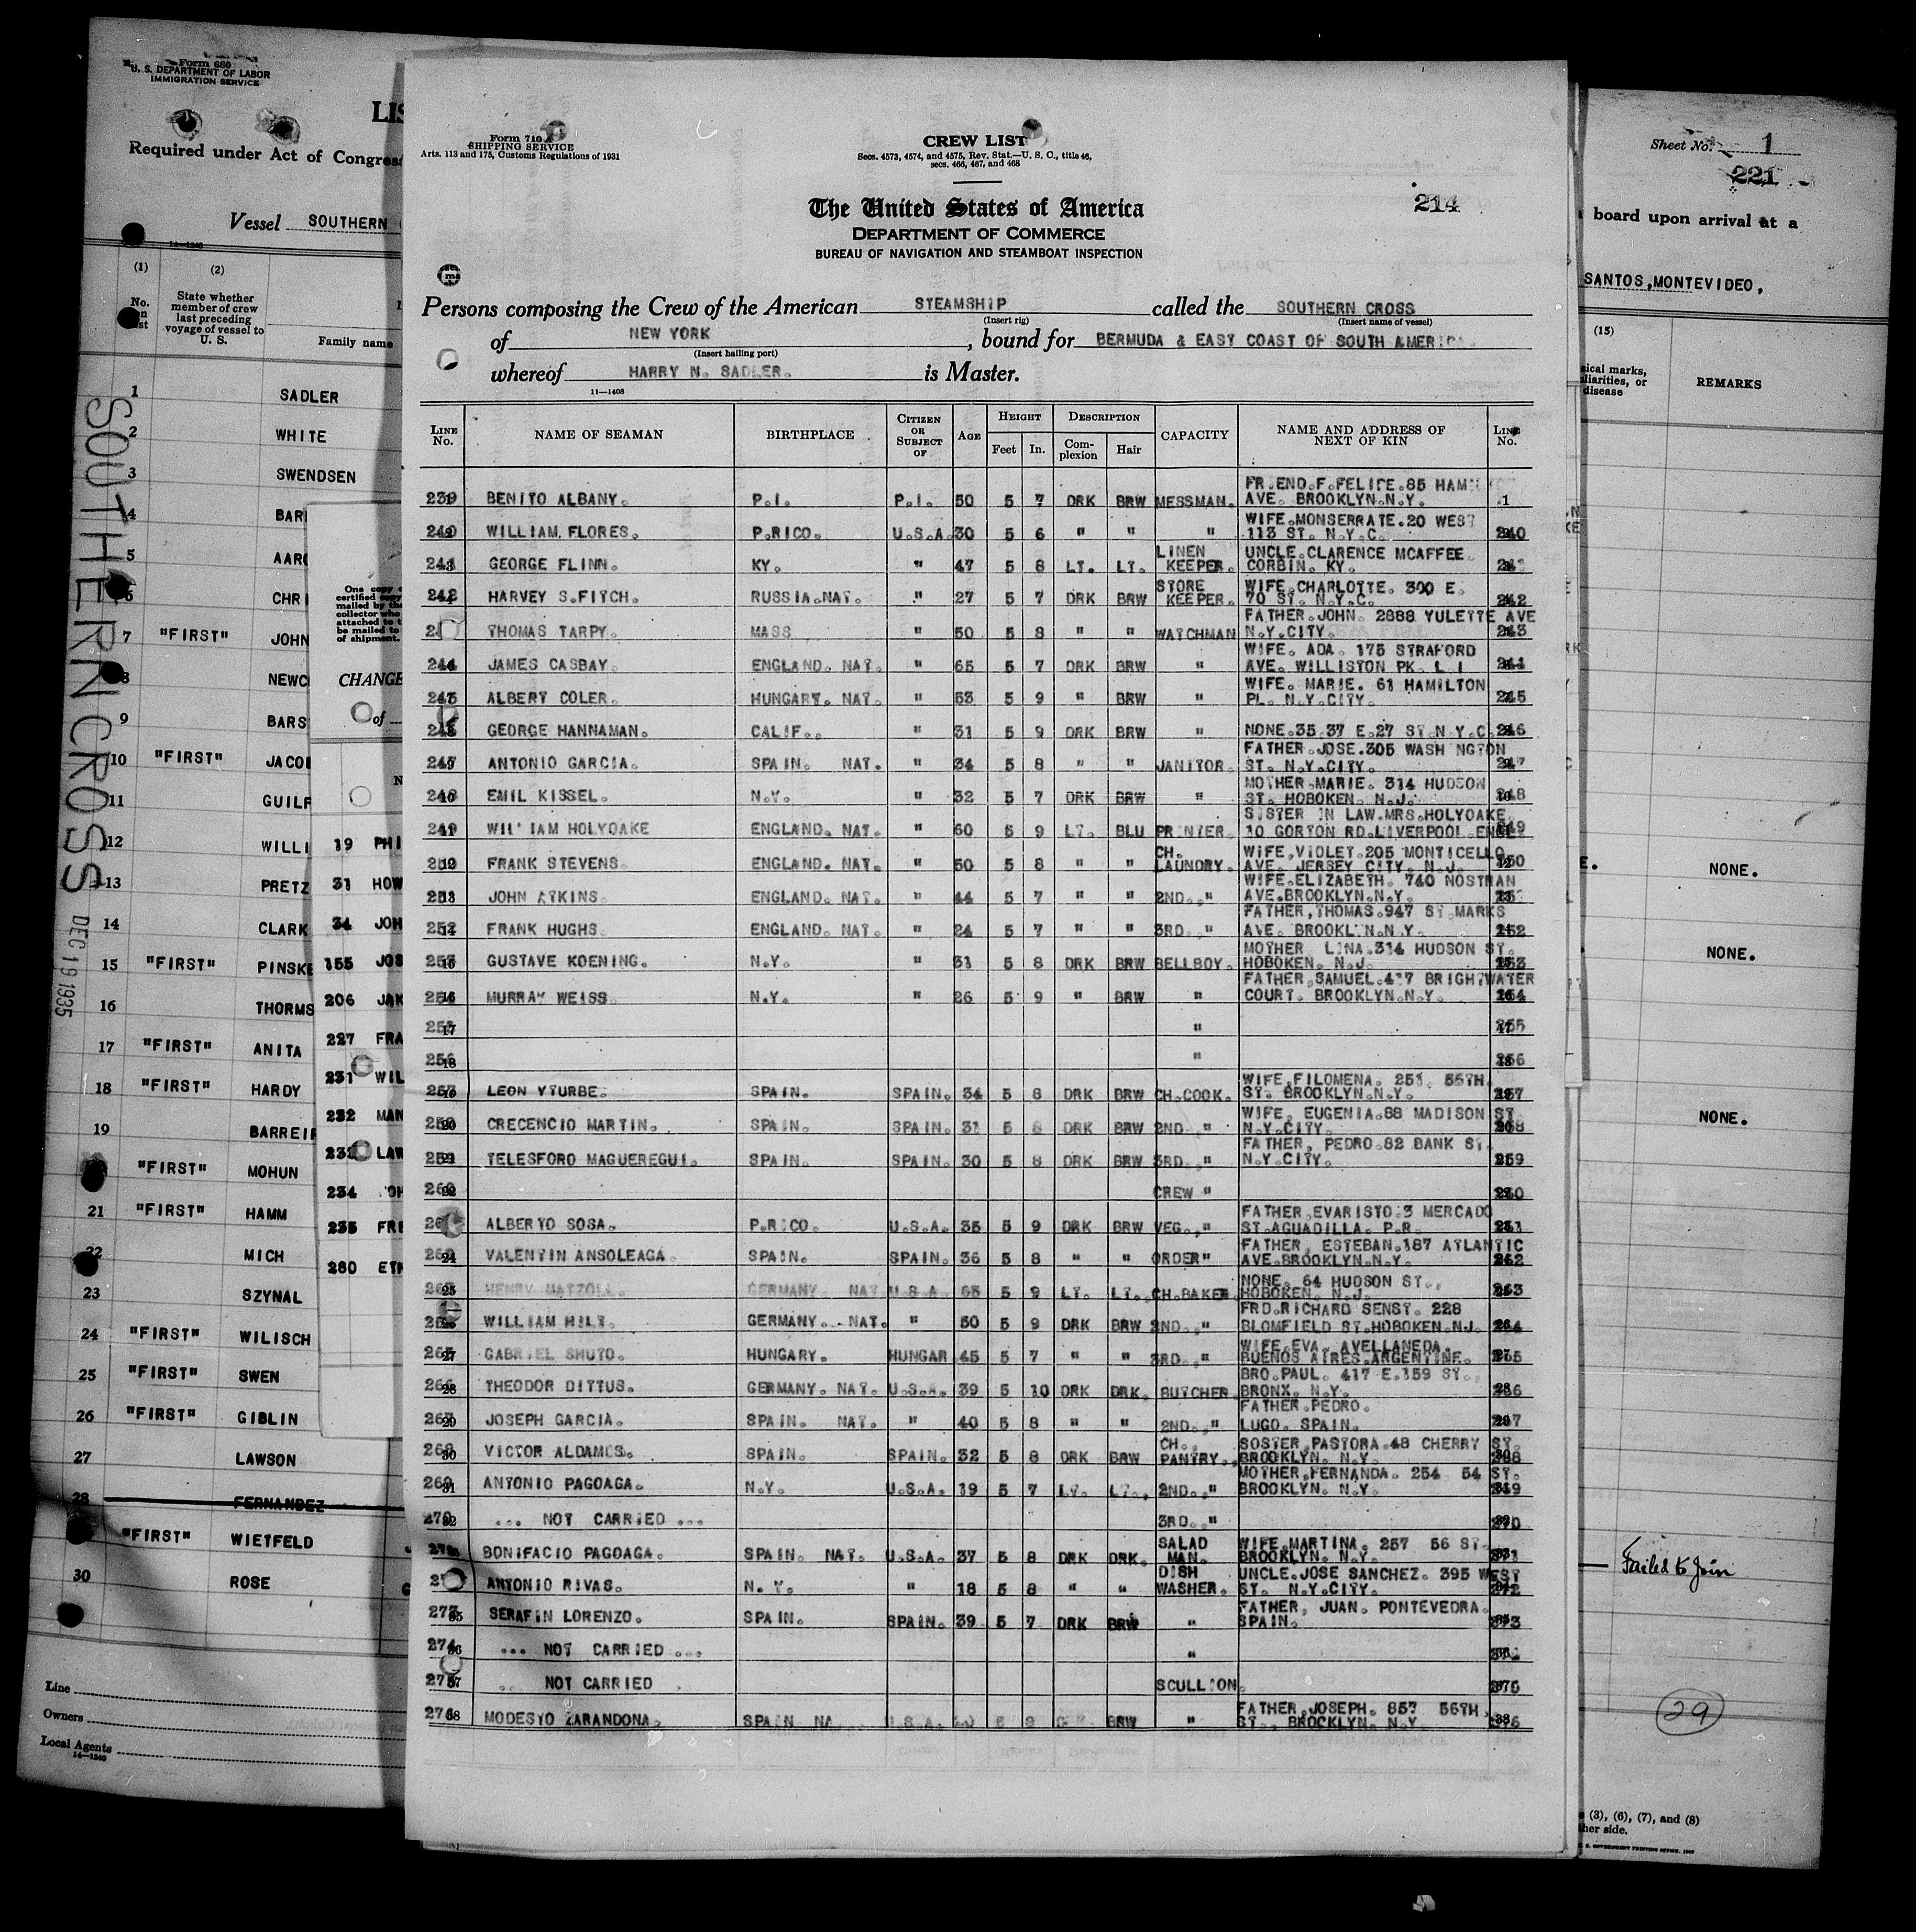 Form 680
U. S. DEPARTMENT OF LABOR
IMMIGRATION SERVICE
LIS
Required under Act of Congres
Vessel SOUTHERN
14—1240
(1) (2)
No. on list
State whether member of crew last preceding voyage of vessel to U. S.
Family name
1 SADLER
2 WHITE
3 SWENDSEN
4 BAR
5 AAR
6 CHRI
7 "FIRST" JOHN
8 NEWC
9 BARS
10 "FIRST" JACO
11 GUILF
12 WILLI
13 PRETZ
14 CLARK
15 "FIRST" PINSKE
16 THORMS
17 "FIRST" ANITA
18 "FIRST" HARDY
19 BARREI
"FIRST" MOHUN
21 "FIRST" HAMM
22 MICH
23 SZYNAL
24 "FIRST" WILISCH
25 "FIRST" SWEN
26 "FIRST" GIBLIN
27 LAWSON
28 FERNANDEZ
"FIRST" WIETFELD
30 ROSE
Line
Owners
Local Agents
14—1240
SOUTHERN CROSS
DEC 19 1935
One copy
certified copy
mailed by the
collector who
attached to
be mailed to
of shipment.
CHANGE
of
N
19 PHI
31 HOW
34 JOH
155 JOS
206 JAK
227 FRA
231 WIL
232 MAN
LAW
234 OH
235 FRE
280 ETH
Form 710
SHIPPING SERVICE
Arts. 113 and 175, Customs Regulations of 1931
CREW LIST
Secs. 4573, 4574, and 4575, Rev. Stat.—U. S. C., title 46,
secs. 466, 467, and 468
The United States of America
214
DEPARTMENT OF COMMERCE
BUREAU OF NAVIGATION AND STEAMBOAT INSPECTION
Persons composing the Crew of the American STEAMSHIP called the SOUTHERN CROSS
(Insert rig) (Insert name of vessel)
of NEW YORK, bound for BERMUDA & EAST COAST OF SOUTH AMERICA.
(Insert hailing port)
whereof HARRY N. SADLER. is Master.
11—1408
LINE No. NAME OF SEAMAN BIRTHPLACE CITIZEN OR SUBJECT OF AGE HEIGHT Feet In. DESCRIPTION Complexion Hair CAPACITY NAME AND ADDRESS OF NEXT OF KIN LINE No.
FRIEND.F.FELIPE.85 HAM
239 BENITO ALBANY. P.I. P.I. 50 5 7 DRK BRW MESSMAN. AVE. BROOKLYN.N.Y. 1
WIFE.MONSERRATE.20 WEST
240 WILLIAM FLORES. P.RICO. U.S.A. 30 5 6 " " " 113 ST. N.Y.C. 240
LINEN UNCLE.CLARENCE MCAFFEE.
241 GEORGE FLINN. KY. " 47 5 8 LT. LT. KEEPER. CORBIN. KY.
STORE WIFE.CHARLOTTE. 300 E.
242 HARVEY S.FITCH. RUSSIA.NAT. " 27 5 7 DRK BRW KEEPER. 70 ST. N.Y.C. 242
FATHER.JOHN. 2888 YULETTE AVE
THOMAS TARPY. MASS " 50 5 8 " " WATCHMAN N.Y.CITY. 243
WIFE. ADA. 175 STRAFORD
244 JAMES CASBAY. ENGLAND. NAT. " 65 5 7 DRK BRW " AVE. WILLISTON PK. L I 244
WIFE. MARIE. 61 HAMILTON
245 ALBERT COLER. HUNGARY. NAT. " 53 5 9 " BRW " PL. N.Y.CITY. 245
GEORGE HANNAMAN. CALIF. " 31 5 9 DRK BRW " NONE.35 37 E.27 ST.N.Y.C. 246
FATHER.JOSE.305 WASH NGTON
247 ANTONIO GARCIA. SPAIN. NAT. " 34 5 8 " " JANITOR. ST. N.Y.CITY. 247
MOTHER.MARIE. 314 HUDSON
248 EMIL KISSEL. N.Y. " 32 5 7 DRK BRW " ST. HOBOKEN. N.J. 248
SISTER IN LAW.MRS.HOLYOAKE
249 WILLIAM HOLYOAKE ENGLAND. NAT. " 60 5 9 LT. BLU PRINTER. 10 GORTON RD.LIVERPOOL ENGL
CH. WIFE,VIOLET.205 MONTICELLO
250 FRANK STEVENS. ENGLAND. NAT. " 50 5 8 " " LAUNDRY. AVE. JERSEY CITY. N.J.
WIFE.ELIZABETH. 740 NOSTRAN
251 JOHN ATKINS. ENGLAND. NAT. " 44 5 7 " " 2ND. " AVE.BROOKLYN.N.Y.
FATHER,THOMAS.947 ST.MARKS
252 FRANK HUGHS. ENGLAND. NAT. " 24 5 7 " " 3RD. " AVE. BROOKLYN.N.Y. 252
MOTHER LINA.314 HUDSON ST.
253 GUSTAVE KOENING. N.Y. " 31 5 8 DRK BRW BELLBOY. HOBOKEN. N.J. 253
FATHER,SAMUEL.417 BRIGHTWATER
254 MURRAY WEISS. N.Y. " 26 5 9 " BRW " COURT. BROOKLYN.N.Y. 254
255 17 " 255
256 18 " 256
WIFE,FILOMENA. 251. 55TH.
257 LEON YTURBE. SPAIN. SPAIN. 34 5 8 DRK BRW CH.COOK. ST. BROOKLYN.N.Y. 257
WIFE, EUGENIA.88 MADISON ST.
258 CRECENCIO MARTIN. SPAIN. SPAIN. 31 5 8 DRK BRW 2ND. " N.Y.CITY. 258
FATHER, PEDRO.82 BANK ST.
259 TELESFORO MAGUEREGUI. SPAIN. SPAIN. 30 5 8 DRK BRW 3RD. " N.Y.CITY. 259
260 CREW " 260
FATHER,EVARISTO.3 MERCADO
ALBERTO SOSA. P.RICO. U.S.A. 35 5 9 DRK BRW VEG., " ST.AGUADILLA. P.R.
FATHER, ESTEBAN.187 ATLANTIC
262 VALENTIN ANSOLEAGA. SPAIN. SPAIN. 36 5 8 " " ORDER" AVE.BROOKLYN.N.Y. 262
NONE. 64 HUDSON ST.,
263 HENRY MATZOLL. GERMANY NAT U.S.A. 65 5 9 LT. LT. CH.BAKER. HOBOKEN. N.J. 263
FRD.RICHARD SENST. 228
WILLIAM HILT. GERMANY. NAT. " 50 5 9 DRK BRW 2ND. " BLOMFIELD ST.HOBOKEN.N.J. 264
WIFE.EVA. AVELLANEDA.
265 GABRIEL SHUTO. HUNGARY. HUNGAR 45 5 7 " " 3RD. " BUENOS AIRES.ARGENTINE. 265
BRO.PAUL. 417 E.159 ST.,
266 THEODOR DITTUS. GERMANY. NAT. U.S.A. 39 5 10 DRK DRK. BUTCHER. BRONX. N.Y. 266
FATHER.PEDRO.
267 JOSEPH GARCIA. SPAIN. NAT. " 40 5 8 " " 2ND. " LUGO. SPAIN. 267
CH., SOSTER,PASTORA.48 CHERRY ST.
268 VICTOR ALDAMOS. SPAIN. SPAIN. 32 5 8 DRK BRW PANTRY. BROOKLYN. N.Y. 268
MOTHER,FERNANDA. 254 54 ST.
269 ANTONIO PAGOAGA. N.Y. U.S.A. 19 5 7 LT. LT. 2ND. " BROOKLYN. N.Y. 269
270 ... NOT CARRIED ... 3RD. " 270
SALAD WIFE,MARTINA. 257 56 ST.
271 BONIFACIO PAGOAGA. SPAIN. NAT. U.S.A. 37 5 8 DRK DRK. MAN. BROOKLYN. N.Y. 271
DISH UNCLE.JOSE SANCHEZ. 395 WEST
ANTONIO RIVAS. N. Y. " 18 5 8 " " WASHER. ST. N.Y.CITY. 272
FATHER, JUAN. PONTEVEDRA.
273 SERAFIN LORENZO. SPAIN. SPAIN. 39 5 7 DRK BRW " SPAIN. 273
274 ... NOT CARRIED ... "
275 NOT CARRIED SCULLION. 275
FATHER,JOSEPH. 857 56TH.
276 MODESTO ZARANDONA. SPAIN NA U.S.A. BRW " ST. BROOKLYN. N.Y. 276
Sheet No. 1
221
board upon arrival at a
SANTOS,MONTEVIDEO,
(15)
ical marks,
liarities, or
disease
REMARKS
NONE.
NONE.
NONE.
Failed to Join
29
(3), (6), (7), and (8)
her side.